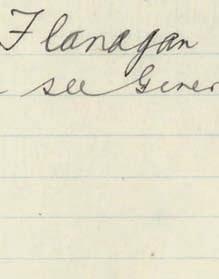 Flanagan
see Gener